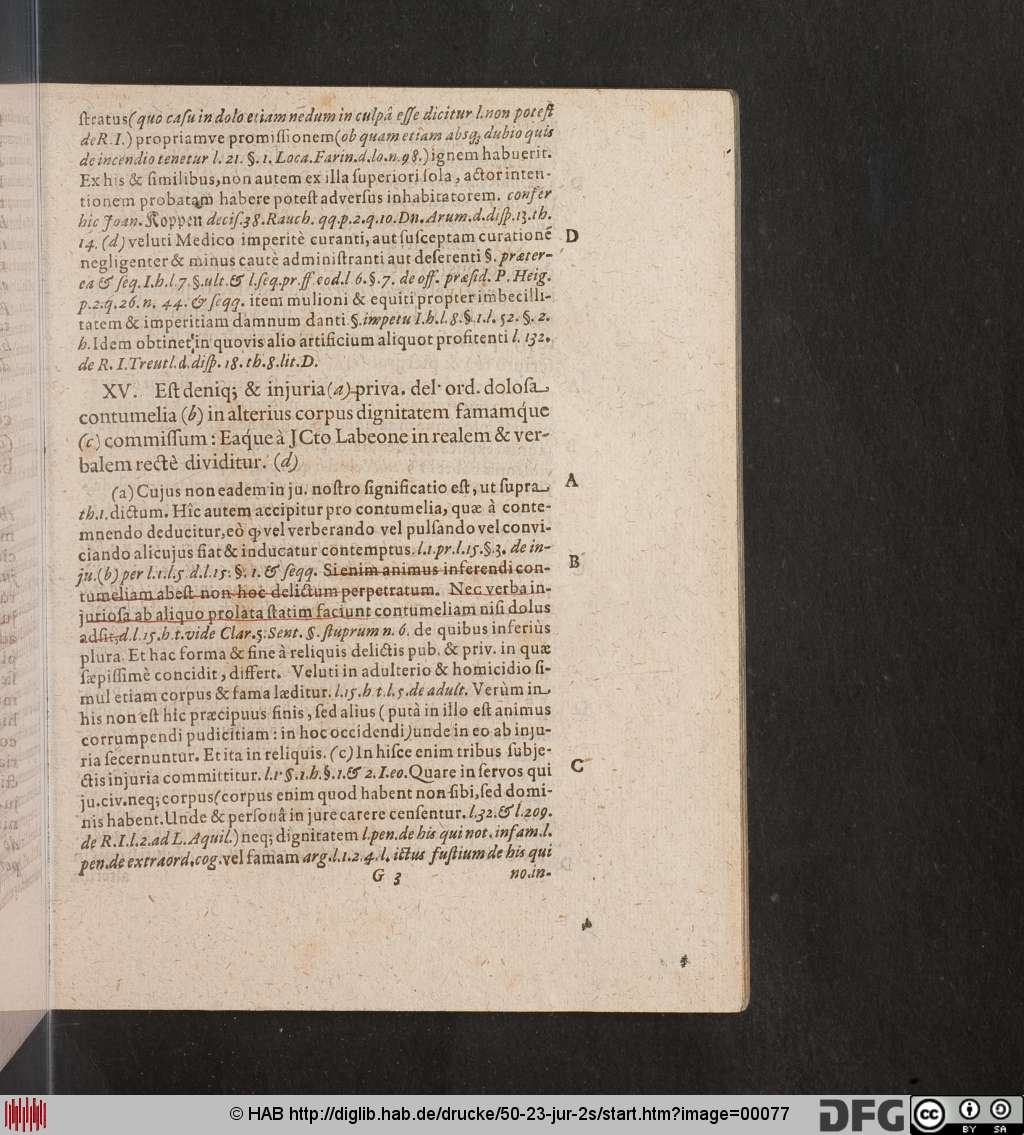 stratus (quo casu in dolo etiam nedum in culpâ esse dicitur l. non potest
de R. I.) propriamve promissionem (ob quam etiam absq; dubio quis
de incendio tenetur l. 21. §. 1. Loca. Farin. d. lo. n. 98.) ignem habuerit.
Ex his & similibus, non autem ex illa superiori sola, actor inten-
tionem probatam habere potest adversus inhabitatorem. confer
hic Joan. Koppen decis. 38. Rauch. qq. p. 2. q. 10. Dn. Arum. d. disp. 13. th.
14. (d) veluti Medico imperitè curanti, aut susceptam curationẽ D
negligenter & minus cautè administranti aut deserenti §. præter-
ea & seq. I. h. l. 7. §. ult. & l. seq. pr. ff eod. l 6. §. 7. de off. præsid. P. Heig.
p. 2. q. 26. n. 44. & seqq. item mulioni & equiti propter imbecilli-
tatem & imperitiam damnum danti §. impetu I. h. l. 8. §. 1. l. 52. §. 2.
h. Idem obtinet in quovis alio artificium aliquot profitenti l. 132.
de R. I. Treutl. d. disp. 18. th. 8. lit. D.
XV. Est deniq; & injuria (a) priva. del. ord. dolosa
contumelia (b) in alterius corpus dignitatem famamq́ue
(c) commissum: Eaq́ue à JCto Labeone in realem & ver-
balem rectè dividitur. (d)
(a) Cujus non eadem in ju. nostro significatio est, ut supra A
th. 1. dictum. Hîc autem accipitur pro contumelia, quæ à conte-
mnendo deducitur, eò ꝙ vel verberando vel pulsando vel convi-
ciando alicujus fiat & inducatur contemptus. l. 1. pr. l. 15. §. 3. de in-
ju. (b) per l. 1. l. 5 d. l. 15. §. 1. & seqq. Si enim animus inferendi con- B
tumeliam abest non hoc delictum perpetratum. Nec verba in-
juriosa ab aliquo prolata statim faciunt contumeliam nisi dolus
adsit, d. l. 15. h. t. vide Clar. 5. Sent. §. stuprum n. 6. de quibus inferiùs
plura. Et hac forma & fine à reliquis delictis pub. & priv. in quæ
sæpissimè concidit, differt. Veluti in adulterio & homicidio si-
mul etiam corpus & fama læditur. l. 15. h t. l. 5. de adult. Verùm in
his non est hîc præcipuus finis, sed alius (putà in illo est animus
corrumpendi pudicitiam: in hoc occidendi) unde in eo ab inju-
ria secernuntur. Et ita in reliquis. (c) In hisce enim tribus subje-
ctis injuria committitur. l. 1. §. 1. h. §. 1. & 2. I. eo. Quare in servos qui C
ju. civ. neq; corpus (corpus enim quod habent non sibi, sed domi-
nis habent. Unde & personâ in jure carere censentur. l. 32. & l. 209.
de R. I. l. 2. ad L. Aquil.) neq; dignitatem l. pen. de his qui not. infam. l.
pen. de extraord. cog. vel famam arg. l. 1. 2. 4. l. ictus fustium de his qui
G 3 no. in-
© HAB http://diglib.hab.de/drucke/50-23-jur-2s/start.htm?image=00077
DFG cc BY SA